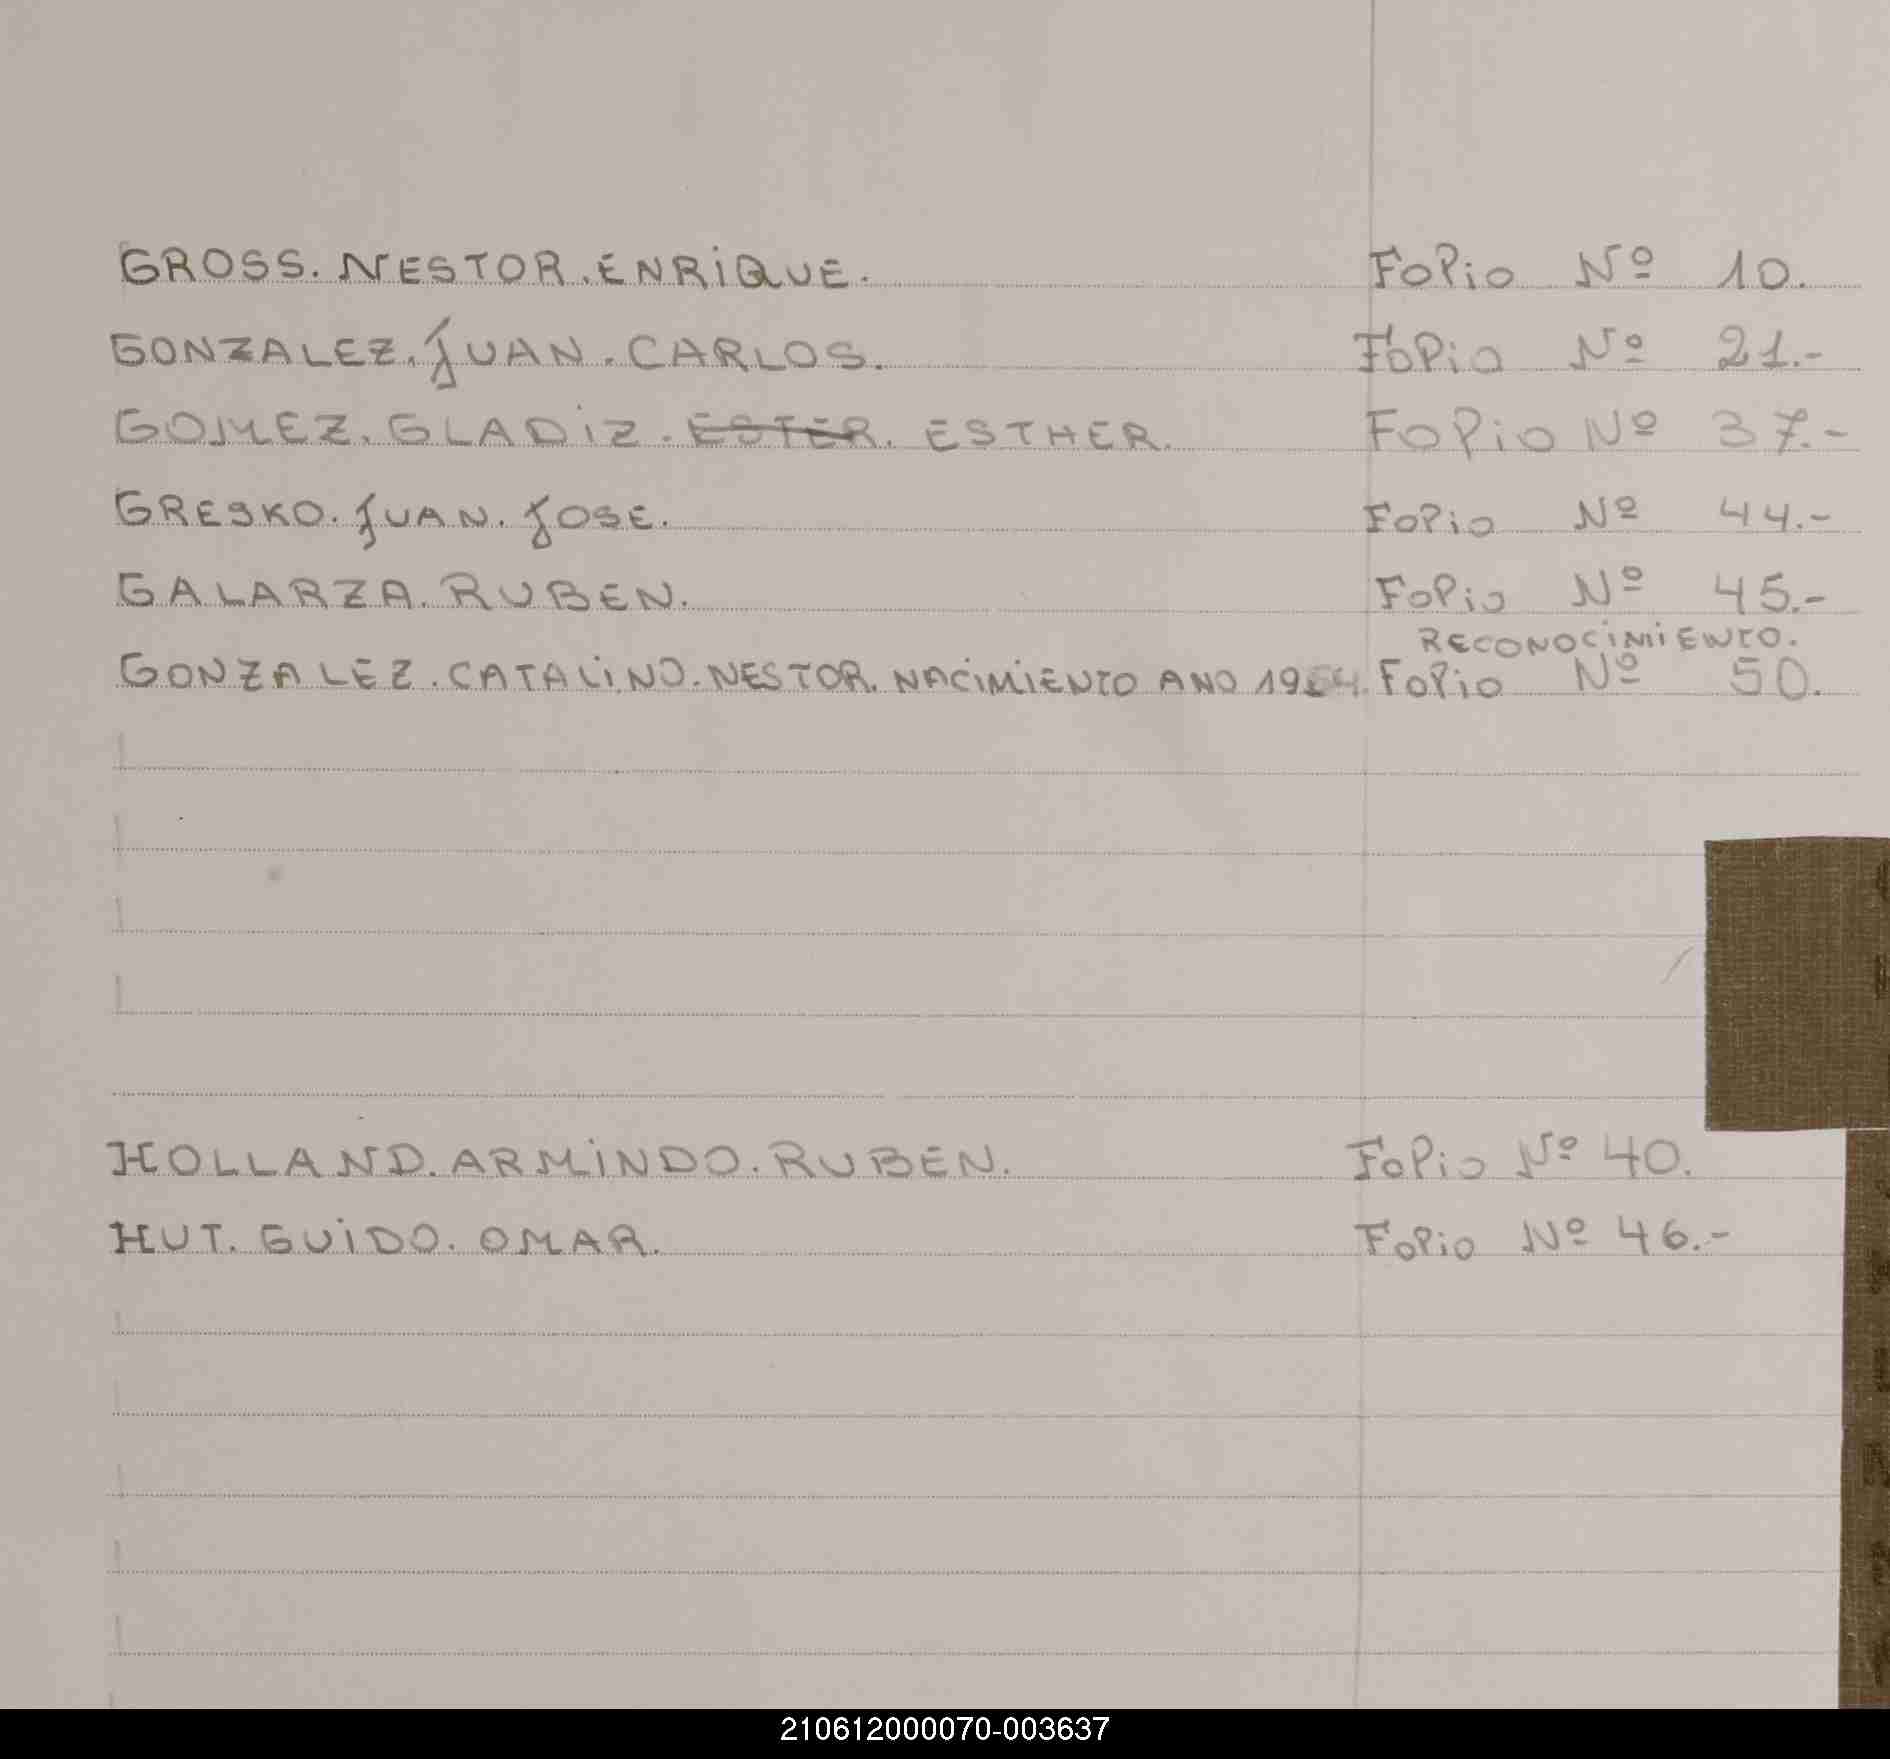 GROSS. NESTOR. ENRiQUE. FoPio Nº 10.
GONZALEZ. JUAN. CARLOS. FoPio Nº 21.-
GOMEZ. GLADiZ. ESTER. ESTHER. FoPio Nº 37.-
GRESKO. JUAN. JOSE. FoPio Nº 44.-
GALARZA. RUBEN. FoPio Nº 45.-
RECONOCiMiENTO.
GONZALEZ. CATALiNO. NESTOR. NACiMiENTO ANO 1964. FoPio Nº 50.
HOLLAND. ARMiNDO. RUBEN. FoPio Nº 40.
HUT. GUiDO. OMAR. FoPio Nº 46.-
210612000070-003637